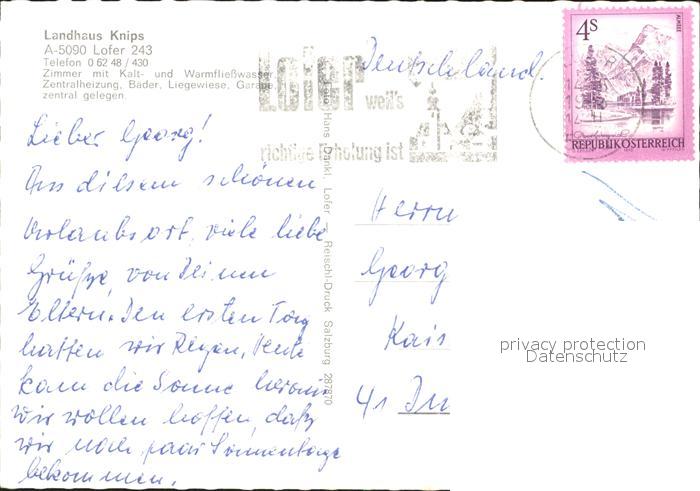 Landhaus Knips
A-5090 Lofer 243
Telefon 0 62 48 / 430
Zimmer mit Kalt- und Warmfließwasser
Zentralheizung, Bäder, Liegewiese, Garage,
zentral gelegen.
Lieber Georg!
Aus diesem schönen
Urlaubsort, viele liebe
Grüße, von Deinen
Eltern. Den ersten Tag
hatten wir Regen, Heute
kam die Sonne heraus
Wir wollen hoffen, daß
wir noch paar Sonnentage
bekommen.
Lofer
weil's
richtige Erholung ist
Hans Dankl, Lofer — Reischl-Druck Salzburg 287870
Deutschland.
4S
ALMSEE
REPUBLIK ÖSTERREICH
Herrn
Georg
Kais
41 Du
privacy protection
Datenschutz